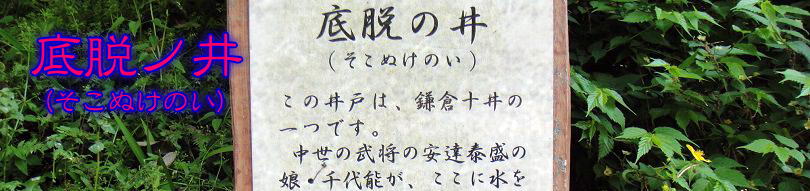 底脱ノ井
(そこぬけのい)
底脱の井
(そこぬけのい)
この井戸は、鎌倉十井の
一つです。
中世の武将の安達泰盛の
娘・千代能が、ここに水を